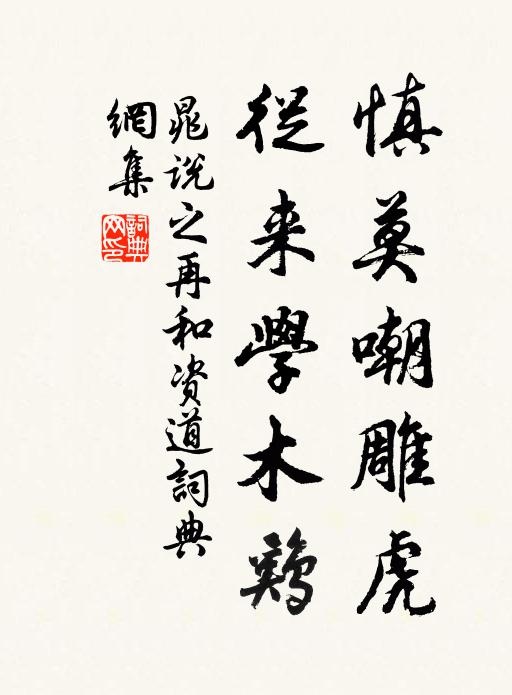 慎莫嘲雕虎
從来學木鷄
晁說之再和资道詞典
網集
詞典网印